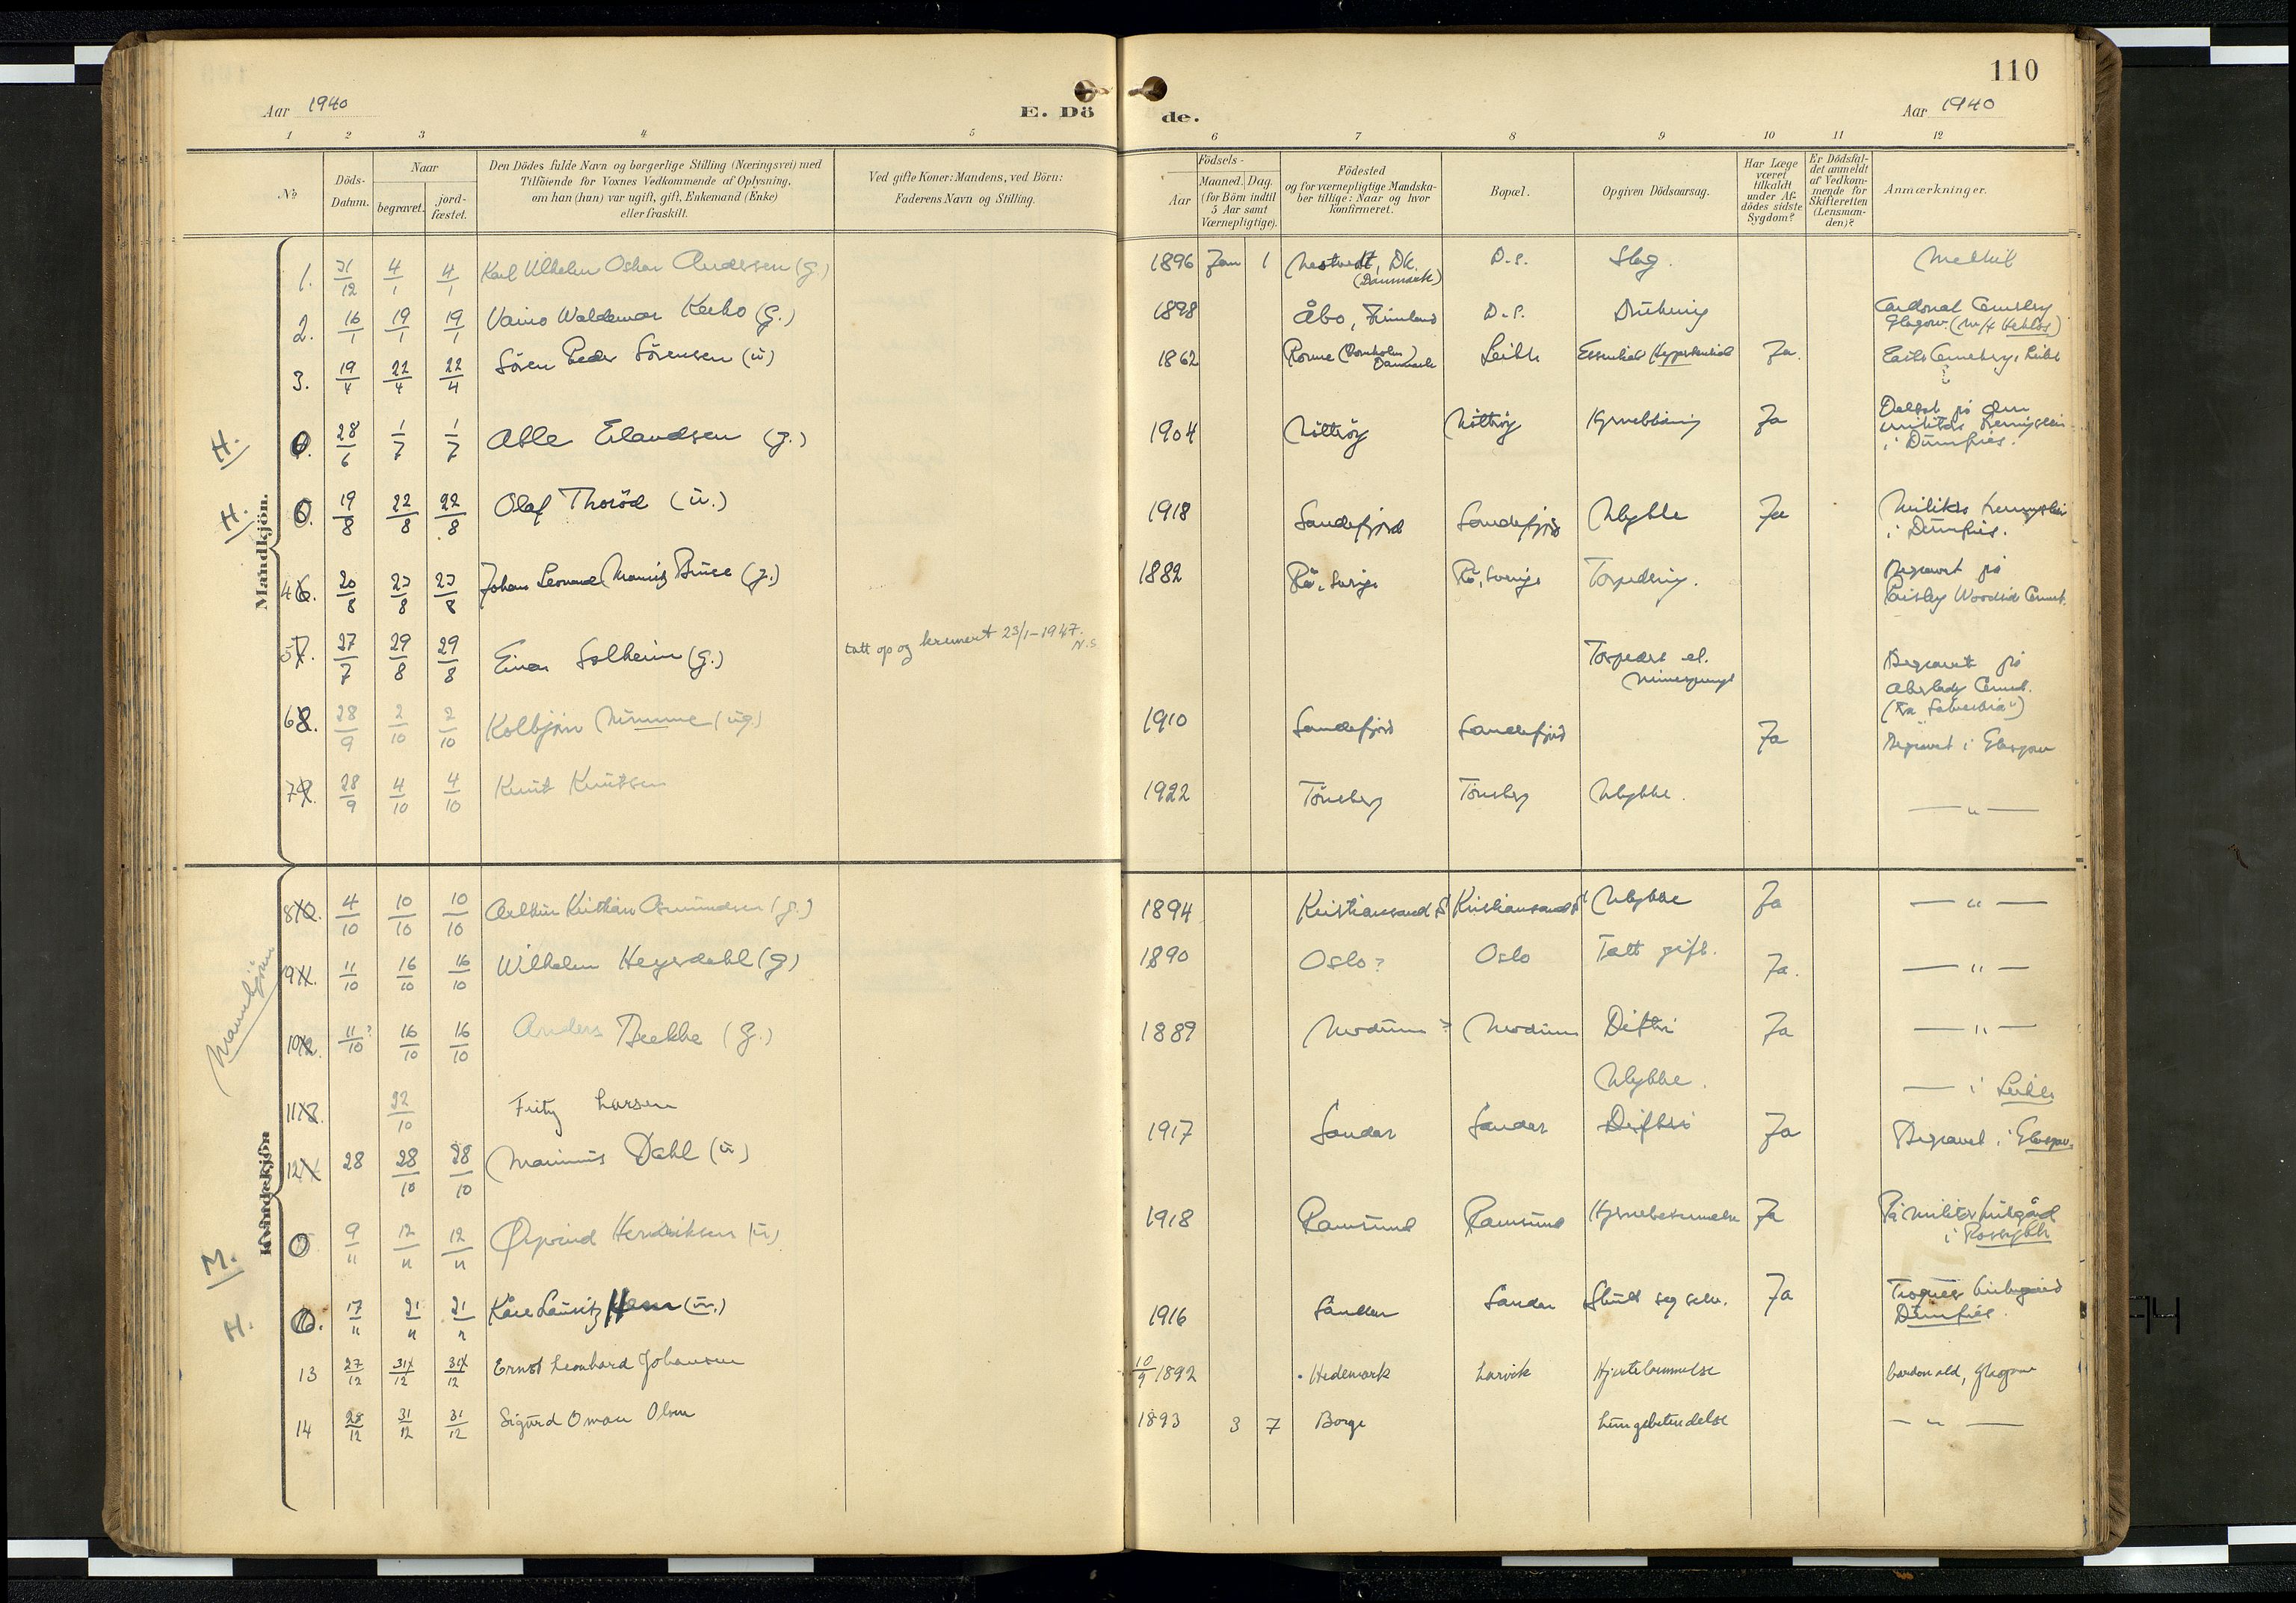 110
Aar 1940
E. Dö
de.
Aar 1940
1 2 3 4 5 6 7 8 9 10 11 12
No
Döds-Datum.
Naar
begravet.
jord-fæstet.
Den Dödes fulde Navn og borgerlige Stilling (Næringsvei) med
Tilföiende for Voxnes Vedkommende af Oplysning,
om han (hun) var ugift, gift, Enkemand (Enke)
eller fraskilt.
Ved gifte Koner: Mandens, ved Börn:
Faderens Navn og Stilling.
Födsels-
Aar
Maaned. Dag.
(for Börn indtil
5 Aar samt
Værnepligtige).
Födested
og for værnepligtige Mandska-
ber tillige: Naar og hvor
konfirmeret.
Bopæl.
Opgiven Dödsaarsag.
Har Læge
været
tilkaldt
under Af-
dödes sidste
Sygdom?
Er Dödsfal-
det anmeldt
af Vedkom-
mende for
Skifteretten
(Lensman-
den)?
Anmærkninger.
Mandkjön.
1. 31/12 4/1 4/1 Karl Vilhelm Oskar Andersen (g.) 1896 Jan 1 Nestvedt, DK. (Danmark) D.s. Slag.
2. 16/1 19/1 19/1 Vaino Waldemar Kerho (g.) 1898 Åbo, Finnland D.s. Drukning Cardonal Cemetery Glasgow (M/t
3. 19/4 22/4 22/4 Sören Peder Sörensen (u) 1862 Rönne (Bornholm) Danmark Leith Essential Hypertension Ja. Leith
H. 28/6 1/7 1/7 Erlandsen (g.) 1904 Nöttröy Nöttröy Ja i Dumfries.
H. 19/8 22/8 22/8 Olaf Thoröd (u.) 1918 Sandefjord Sandefjord Ulykke Ja i Dumfries.
4 6. 20/8 23/8 23/8 Johan Leonard (g.) 1882 Rö, Sverige Rö, Sverige Torpedering. Begravet på Paisley Woodside Cemet.
5 7. 27/7 29/8 29/8 Einar Solheim (g.) tatt op og kremert 23/1-1947. N.S. Torpedert el. minesprengt Begravet på Aberlady Cemet.
6 8. 28/9 2/10 2/10 Kolbjörn (ug.) 1910 Sandefjord Sandefjord Ja Begravet i Glasgow
7 9. 28/9 4/10 4/10 Knut Knutsen 1922 Tönsberg Tönsberg Ulykke. — " —
Mannkjönn
Kvindekjön
8 10. 4/10 10/10 10/10 Arthur Kristian Asmundsen (g.) 1894 Kristiansand S Kristiansand S Ulykke Ja — " —
9 11. 11/10 16/10 16/10 Wilhelm Heyerdahl (g) 1890 Oslo? Oslo Tatt gift. Ja. — " —
10 12. 11/10? 16/10 16/10 Anders Bekke (g.) 1889 Modum? Modum Difteri Ja — " —
11 22/10 Fritz Larsen Ulykke. — i Leith
12 28 28/10 28/10 Marinius Dahl (u) 1917 Sandar Sandar Difteri Ja Begravet i Glasgow.
M. 9/11 12/11 12/11 Øyvind Hendriksen (u) 1918 Ramsund Ramsund Hjernebetennelse Ja På i Rosyth
H. 17/11 21/11 21/11 Kåre Lauritz (u.) 1916 Sandar Sandar Skutt seg selv. Ja Dumfries.
13 27/12 31/12 31/12 Ernst Leonhard Johansen 10/9 1892 Hedemark Larvik Hjertelammelse Cardonald, Glasgow
14 28/12 31/12 31/12 Sigurd Oman Olsen 1893 3 7 Borge Lungebetendelse — " —